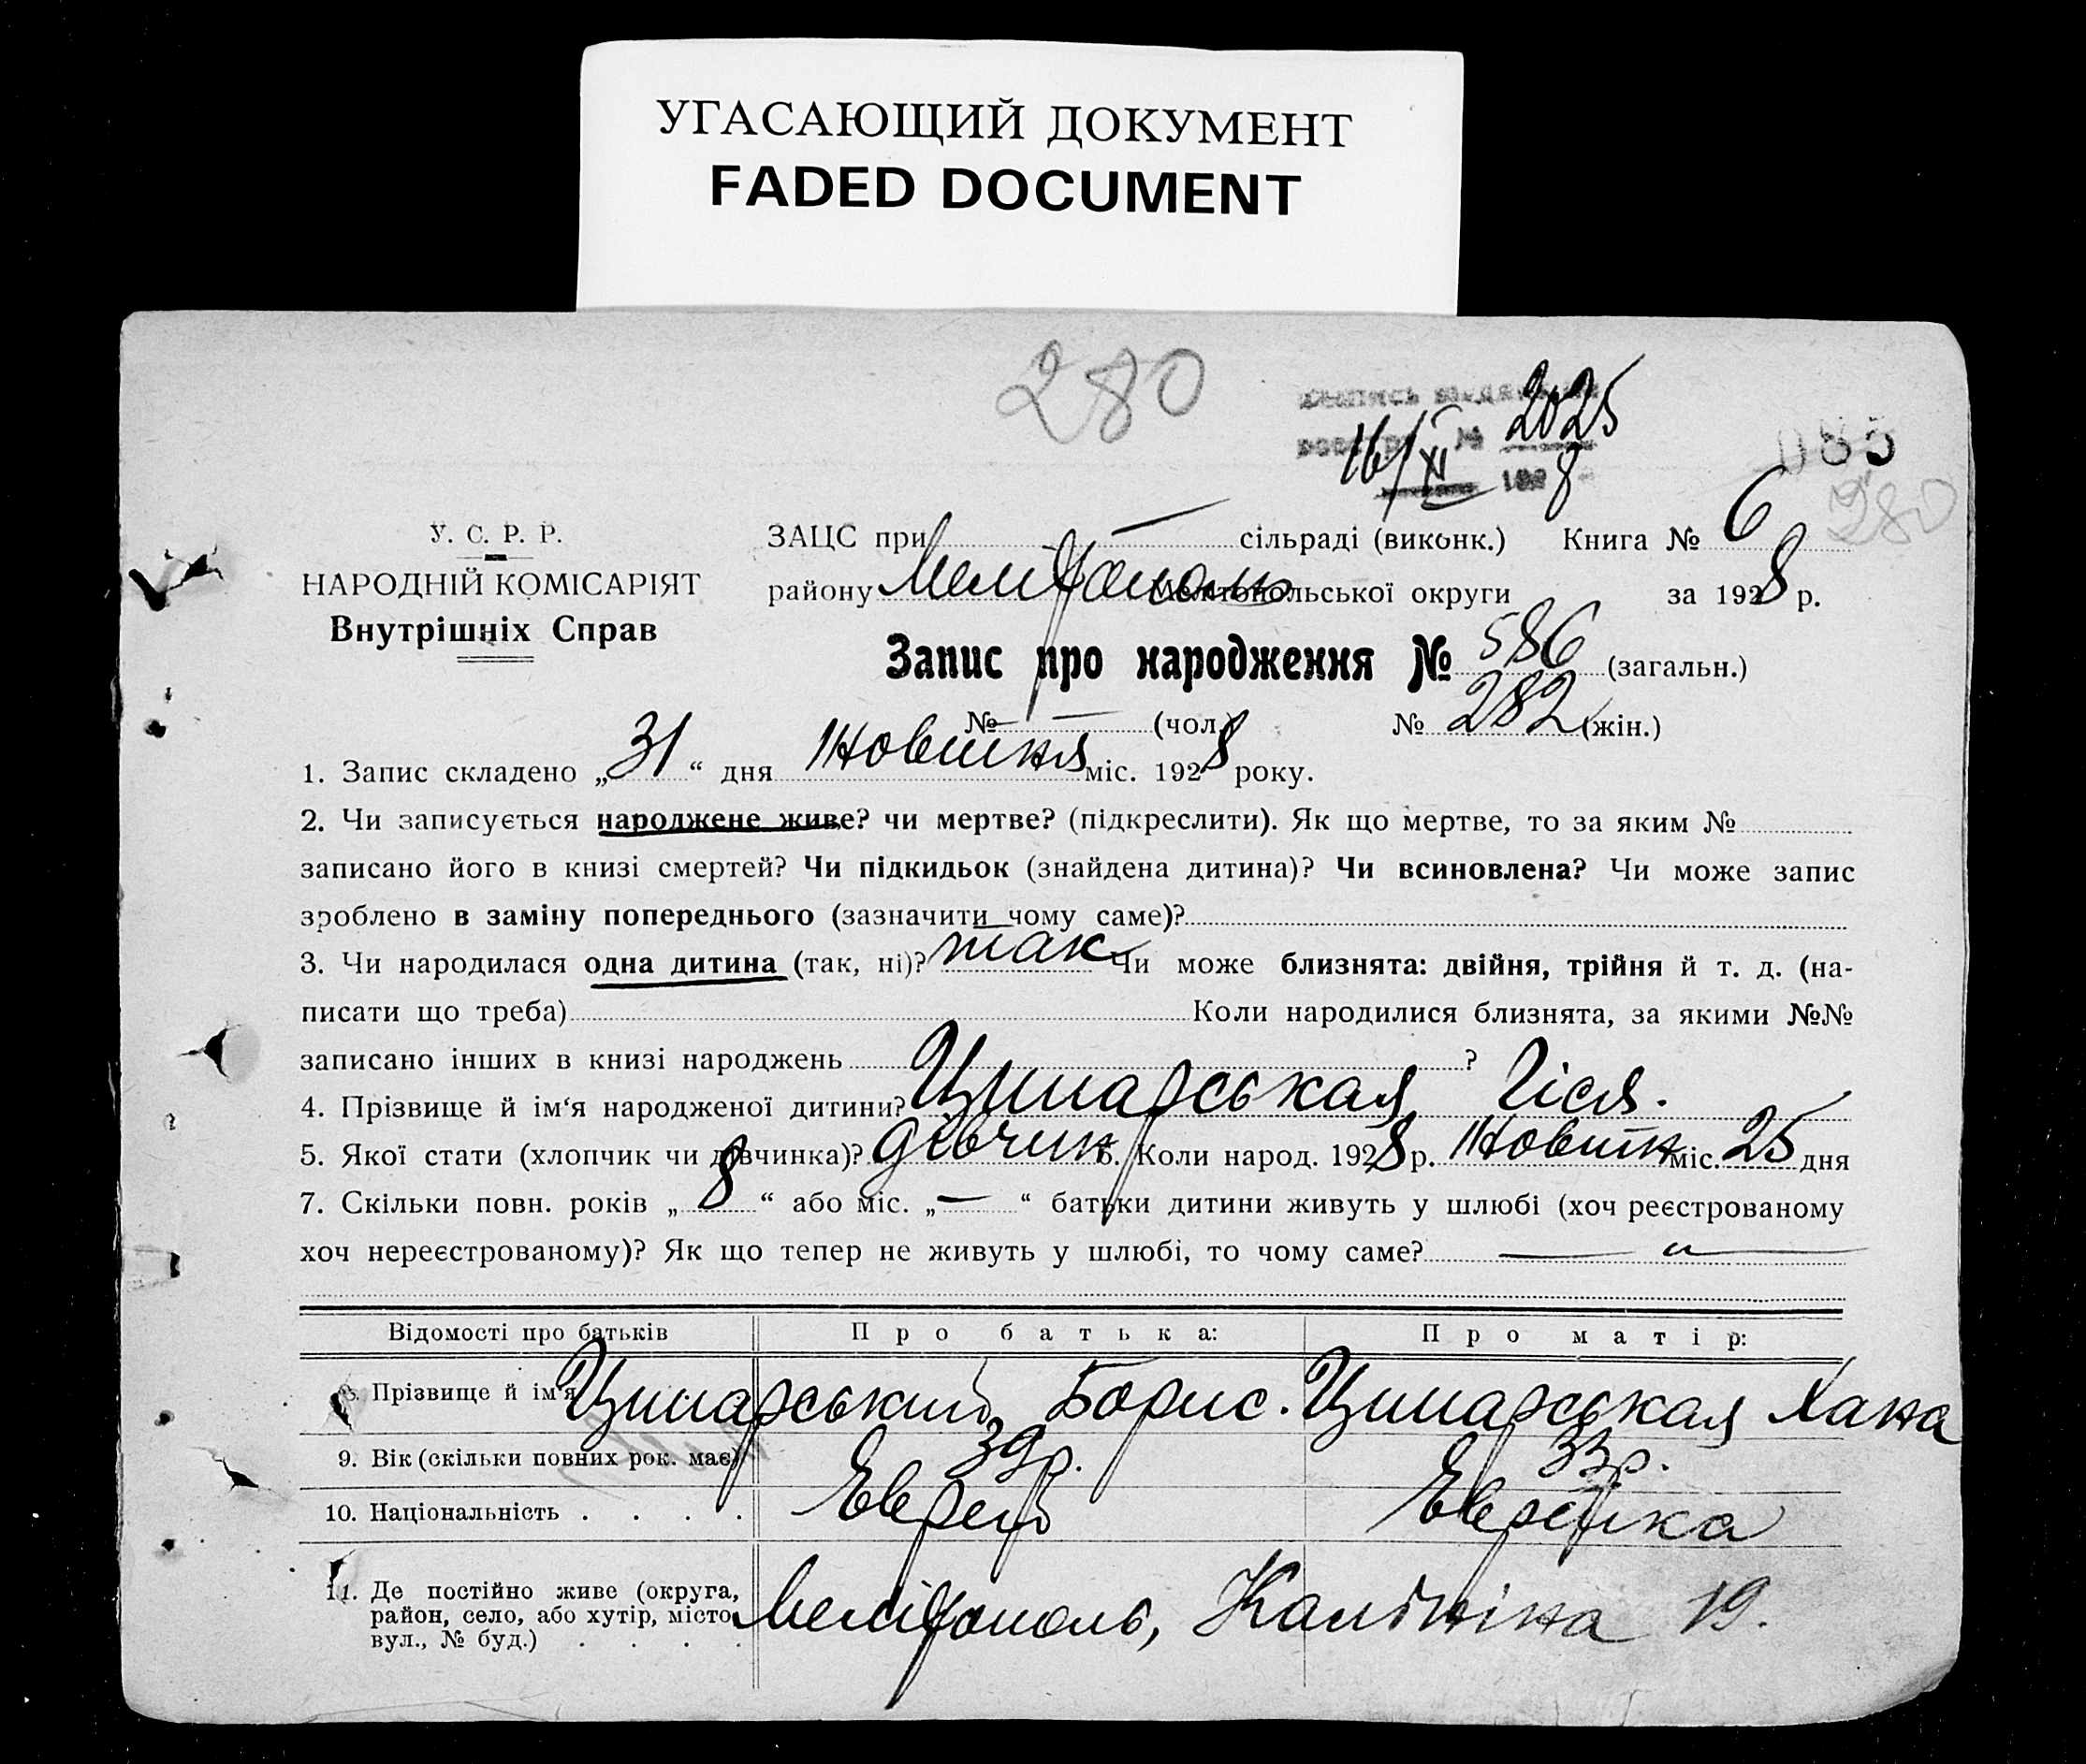 УГАСАЮЩИЙ ДОКУМЕНТ
FADED DOCUMENT
280
2025
16/XI 1928
085
280
У. С. Р. Р.
НАРОДНІЙ КОМІСАРІЯТ
Внутрішніх Справ
ЗАЦС при — сільраді (виконк.) Книга № 6
району Мелітополь Мелітопольської округи за 1928 р.
Запис про народження № 586 (загальн.)
№ — (чол.) № 282 (жін.)
1. Запис складено „31“ дня Жовтня міс. 1928 року.
2. Чи записується народжене живе? чи мертве? (підкреслити). Як що мертве, то за яким №
записано його в книзі смертей? Чи підкидьок (знайдена дитина)? Чи всиновлена? Чи може запис
зроблено в заміну попереднього (зазначити чому саме)?
3. Чи народилася одна дитина (так, ні)? так Чи може близнята: двійня, трійня й т. д. (на-
писати що треба) Коли народилися близнята, за якими №№
записано інших в книзі народжень ?
4. Прізвище й ім‘я народженої дитини? Ципарськая Гіся.
5. Якої стати (хлопчик чи дівчинка)? дівчин 6. Коли народ. 1928 р. Жовтн міс. 25 дня
7. Скільки повн. років „8“ або міс. „—“ батьки дитини живуть у шлюбі (хоч реєстрованому
хоч нереєстрованому)? Як що тепер не живуть у шлюбі, то чому саме?
Відомості про батьків Про батька: Про матір:
8. Прізвище й ім‘я Ципарський Борис. Ципарськая Хана
9. Вік (скільки повних рок. має) 39 р. 33 р.
10. Національність . . . . Еврей Еврейка
11. Де постійно живе (округа,
район, село, або хутір, місто, Мелітополь, Калініна 19.
вул., № буд.) . . . .